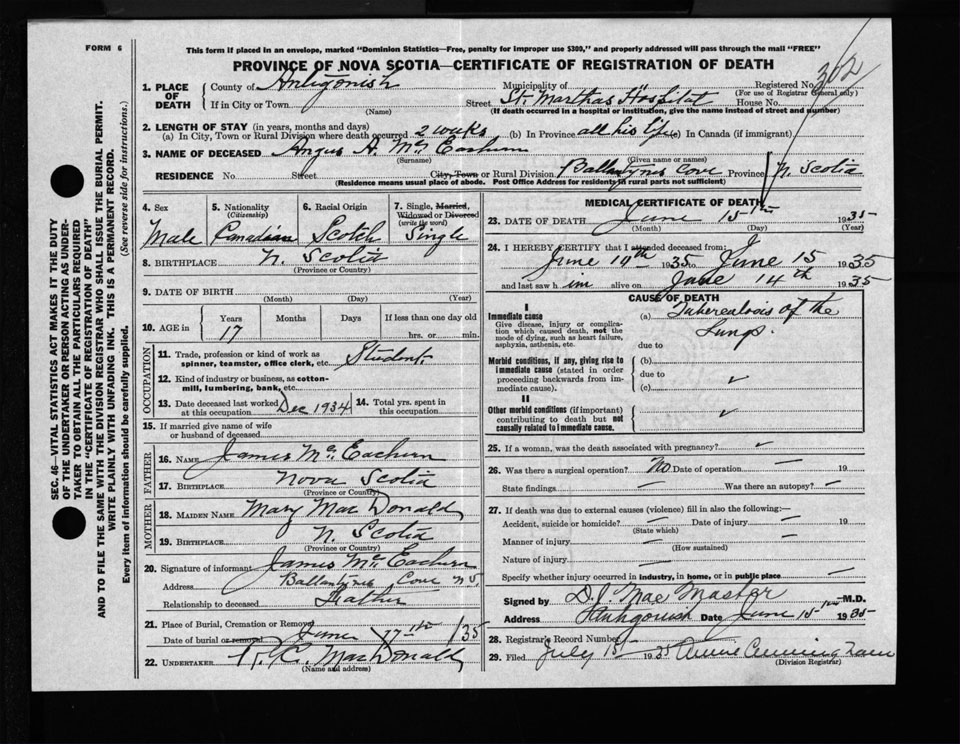 FORM 6
This form if placed in an envelope, marked "Dominion Statistics—Free, penalty for improper use $300," and properly addressed will pass through the mail "FREE"
PROVINCE OF NOVA SCOTIA—CERTIFICATE OF REGISTRATION OF DEATH
302
1. PLACE OF DEATH County of Antigonish Municipality of " Registered No.
(For use of Registrar General only)
If in City or Town (Name) Street St. Marthas Hospital House No.
(If death occurred in a hospital or institution, give the name instead of street and number)
2. LENGTH OF STAY (in years, months and days)
(a) In City, Town or Rural Division where death occurred 2 weeks (b) In Province all his life (c) In Canada (if immigrant)
3. NAME OF DECEASED Angus A. McEachern
(Surname) (Given name or names)
RESIDENCE No. Street City, Town or Rural Division Ballantynes Cove Province N. Scotia
(Residence means usual place of abode. Post Office Address for residents in rural parts not sufficient)
4. Sex Male
5. Nationality (Citizenship) Canadian
6. Racial Origin Scotch
7. Single, Married, Widowed or Divorced (write the word) Single
8. BIRTHPLACE N. Scotia
(Province or Country)
9. DATE OF BIRTH
(Month) (Day) (Year)
10. AGE in Years Months Days If less than one day old
17 hrs. or min.
OCCUPATION
11. Trade, profession or kind of work as spinner, teamster, office clerk, etc. Student
12. Kind of industry or business, as cotton-mill, lumbering, bank, etc.
13. Date deceased last worked at this occupation Dec 1934 14. Total yrs. spent in this occupation
15. If married give name of wife or husband of deceased
FATHER
16. NAME James McEachern
17. BIRTHPLACE Nova Scotia
(Province or Country)
MOTHER
18. MAIDEN NAME Mary MacDonald
19. BIRTHPLACE N. Scotia
(Province or Country)
20. Signature of informant James McEachern
Address Ballantynes Cove N.S.
Relationship to deceased Father
21. Place of Burial, Cremation or Removal
Date of burial or removal June 17th /35
22. UNDERTAKER MacDonald
(Name and address)
MEDICAL CERTIFICATE OF DEATH
23. DATE OF DEATH June 15th 1935
(Month) (Day) (Year)
24. I HEREBY CERTIFY that I attended deceased from:
June 10th 1935 to June 15 1935
and last saw him alive on June 14th 1935
CAUSE OF DEATH
I
Immediate cause
Give disease, injury or complication which caused death, not the mode of dying, such as heart failure, asphyxia, asthenia, etc.
(a) Tuberculosis of the Lungs.
due to
Morbid conditions, if any, giving rise to immediate cause (stated in order proceeding backwards from immediate cause).
(b)
due to
(c)
II
Other morbid conditions (if important) contributing to death but not causally related to immediate cause.
25. If a woman, was the death associated with pregnancy?
26. Was there a surgical operation? No Date of operation 19
State findings Was there an autopsy?
27. If death was due to external causes (violence) fill in also the following:—
Accident, suicide or homicide? Date of injury 19
(State which)
Manner of injury
(How sustained)
Nature of injury
Specify whether injury occurred in industry, in home, or in public place
Signed by D. J. MacMaster M.D.
Address Antigonish Date June 15th 1935
28. Registrar's Record Number
29. Filed July 15 1935
(Division Registrar)
SEC. 46—VITAL STATISTICS ACT MAKES IT THE DUTY
OF THE UNDERTAKER OR PERSON ACTING AS UNDER-
TAKER TO OBTAIN ALL THE PARTICULARS REQUIRED
IN THE "CERTIFICATE OF REGISTRATION OF DEATH"
AND TO FILE THE SAME WITH THE DIVISION REGISTRAR WHO SHALL ISSUE THE BURIAL PERMIT.
WRITE PLAINLY WITH UNFADING INK. THIS IS A PERMANENT RECORD.
Every item of information should be carefully supplied. (See reverse side for instructions.)